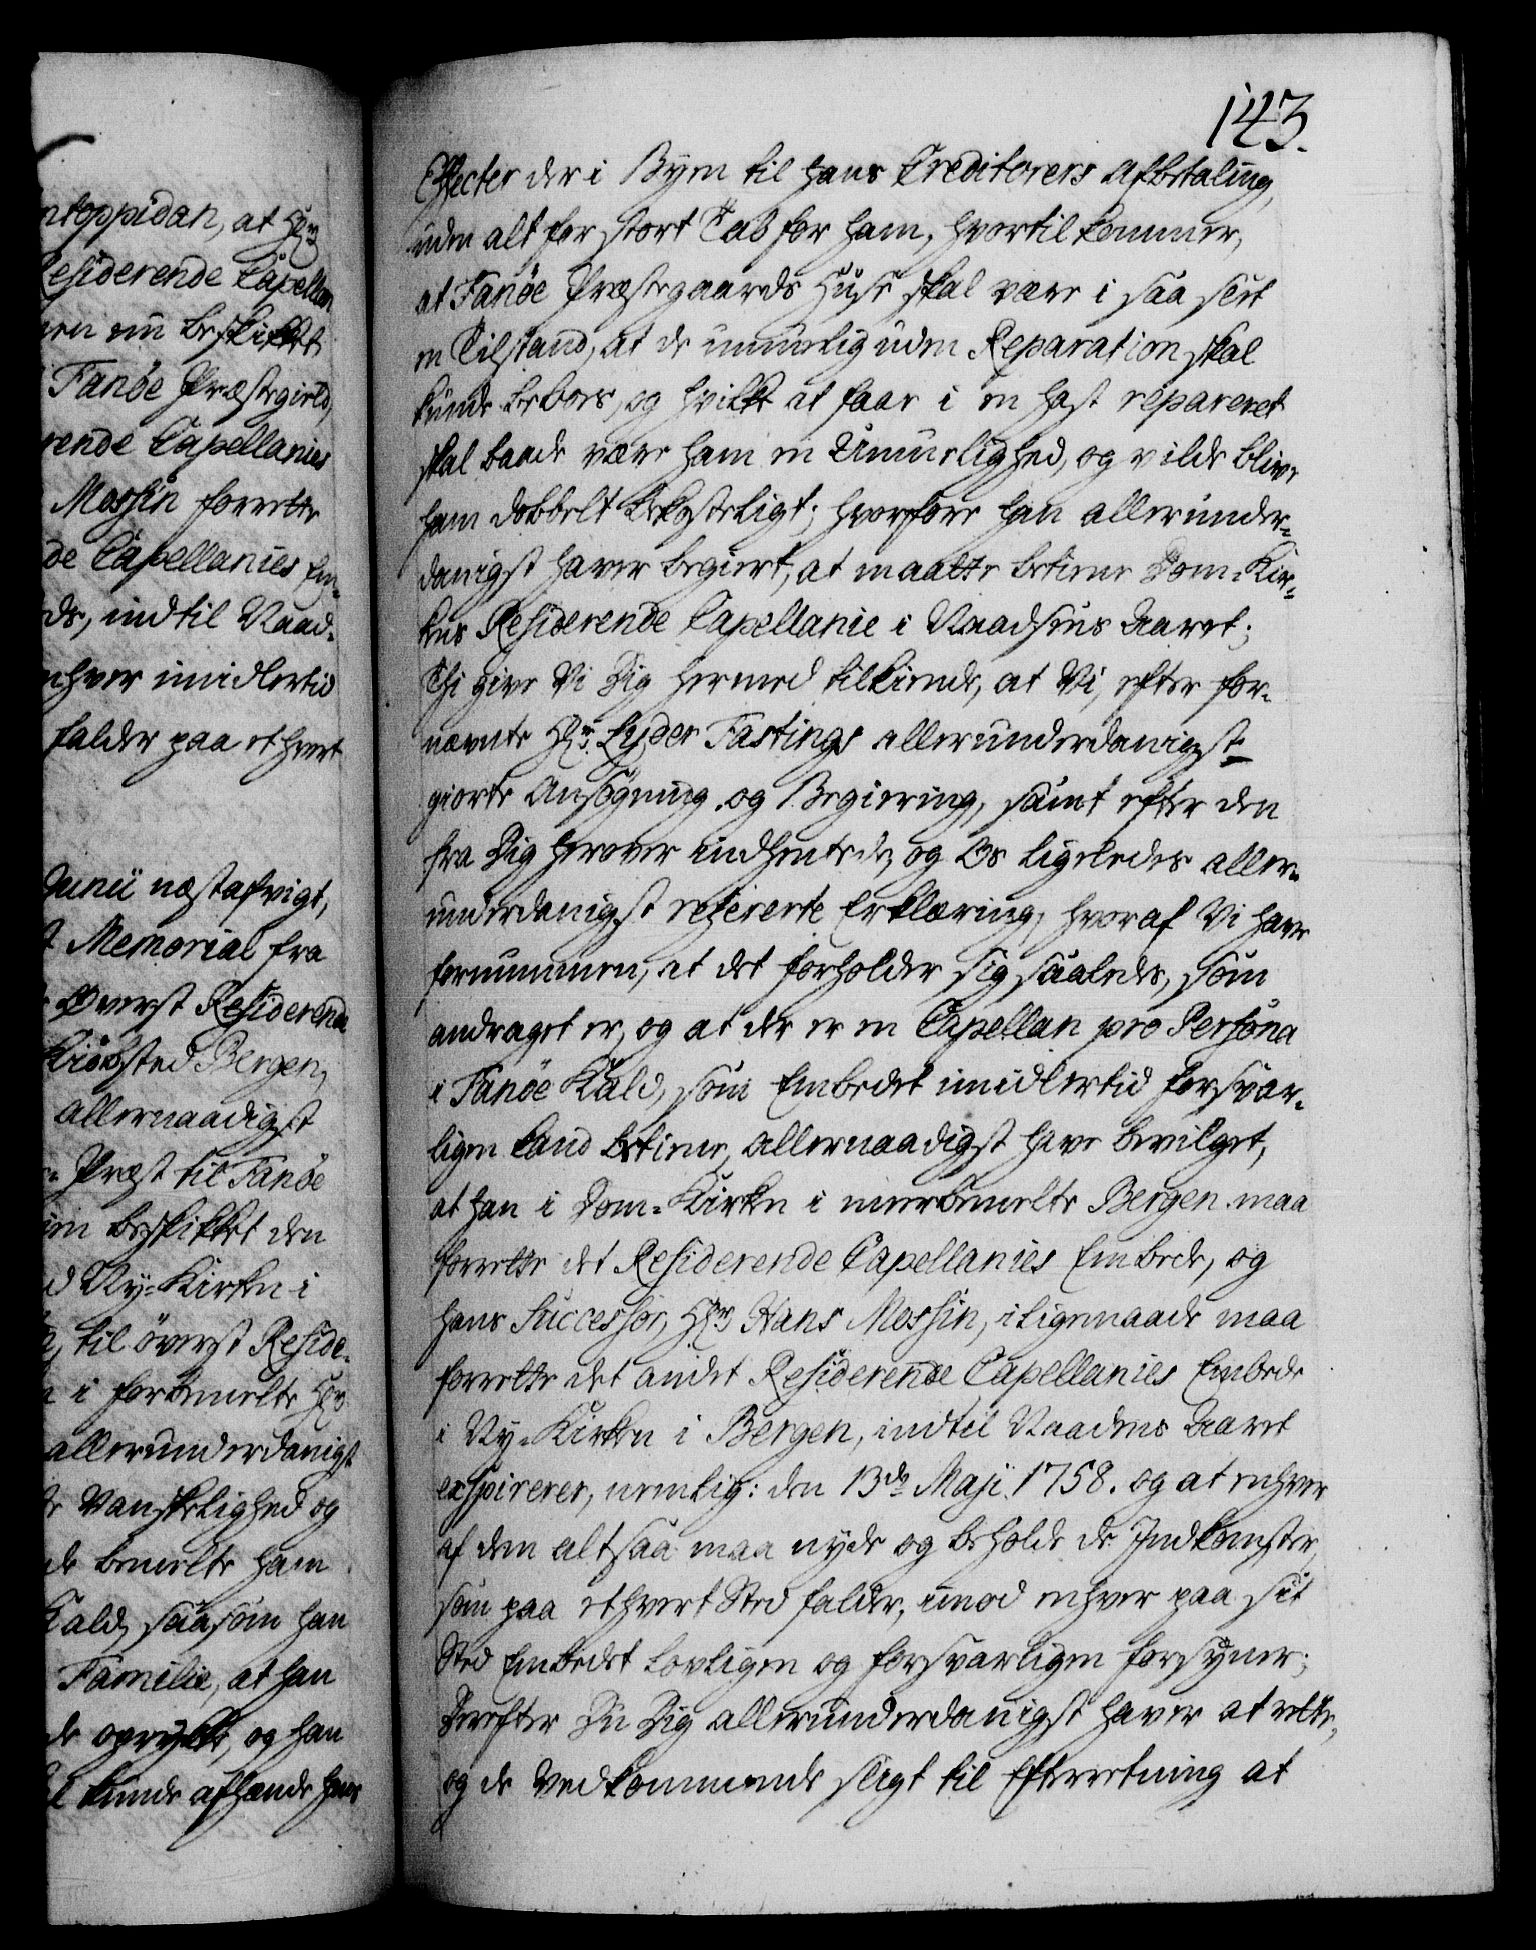 143.
Effecter der i Byen til hans Creditorers Afbetaling,
uden alt for stort Tab for ham, hvortil kommer,
at Fanöe Præstegaards Huse skal være i saa slet
en Tilstand, at de umuelig uden Reparation skal
kunde beboes, og hvilket at faae i en hast repareret
skal baade være ham en Umuelighed, og vilde blive
ham dobbelt bekosteligt; hvorfore han allerunder-
danigst haver begiert, at maatte betiene Dom-Kir-
kens Residerende Capellanie i Naadsens Aaret;
Thi give Vi Dig hermed tilkiende, at Vi, efter for-
nævnte Hr. Lyder Fastings allerunderdanigst
giorte Ansögning og Begiering, samt efter den
fra Dig herover indhentede, og Os ligeledes aller-
underdanigst refererte Erklæring, hvoraf Vi have
fornummen, at det forholder sig saaledes, som
andraget er, og at der er en Capellan pro Persona
i Fanöe Kald, som Embedet imidlertid forsvar-
ligen kand betiene, allernaadigst have bevilget,
at han i Dom-Kirken i meerbemelte Bergen maa
forrette det Residerende Capellanies Embede, og
hans Successor, Hr. Hans Mossin, i ligemaade maa
forrette det andet Residerende Capellanies Embede
i Ny-Kirken i Bergen, indtil Naadens Aaret
exspirerer, nemlig: den 13de Maji 1758. og at enhver
af dem altsaa maa nyde og beholde de Indkomster,
som paa ethvert Sted falder, imod enhver paa sit
Sted Embedet lovligen og forsvarligen forsyner;
Derefter Du Dig allerunderdanigst haver at rette,
og de Vedkommende sligt til Efterretning at
ntoppidan, at Hr.
Residerende Capellan
en nu beskikket
Fanöe Præstegield,
rende Capellanies
Mossin forrette
de Capellanies Em-
de, indtil Naad-
enhver imidlertid
falder paa ethvert
Junii næstafvigt,
Memorial fra
Överst Residerende
Kiöbsted Bergen,
allernaadigst
Præst til Fanöe
en beskikket den
Ny-Kirken i
til överst Reside-
i forbemelte Hr.
allerunderdanigst
Vanskelighed og
de bemelte ham
Kald, saasom han
Familie, at han
de oprykke, og han
kunde afhænde hans